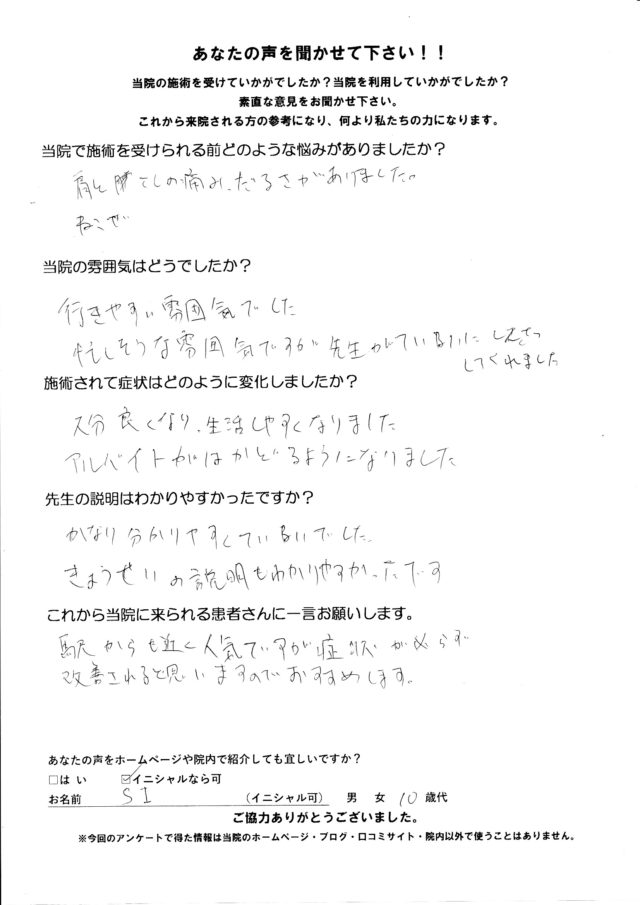 あなたの声を聞かせて下さい！！
当院の施術を受けていかがでしたか？当院を利用していかがでしたか？
素直な意見をお聞かせ下さい。
これから来院される方の参考になり、何より私たちの力になります。
当院で施術を受けられる前どのような悩みがありましたか？
肩と腰こしの痛み、だるさがありました。
ねこぜ
当院の雰囲気はどうでしたか？
行きやすい雰囲気でした
忙しそうな雰囲気ですが先生がていねいに
してくれました
施術されて症状はどのように変化しましたか？
大分良くなり、生活しやすくなりました
アルバイトがはかどるようになりました
先生の説明はわかりやすかったですか？
かなり分かりやすくていねいでした
きょうせいの説明もわかりやすかったです
これから当院に来られる患者さんに一言お願いします。
駅からも近く人気ですが症状が必らず
改善されると思いますのでおすすめします。
あなたの声をホームページや院内で紹介しても宜しいですか？
□はい ☑イニシャルなら可
お名前 SI （イニシャル可） 男 女 10 歳代
ご協力ありがとうございました。
※今回のアンケートで得た情報は当院のホームページ・ブログ・口コミサイト・院内以外で使うことはありません。